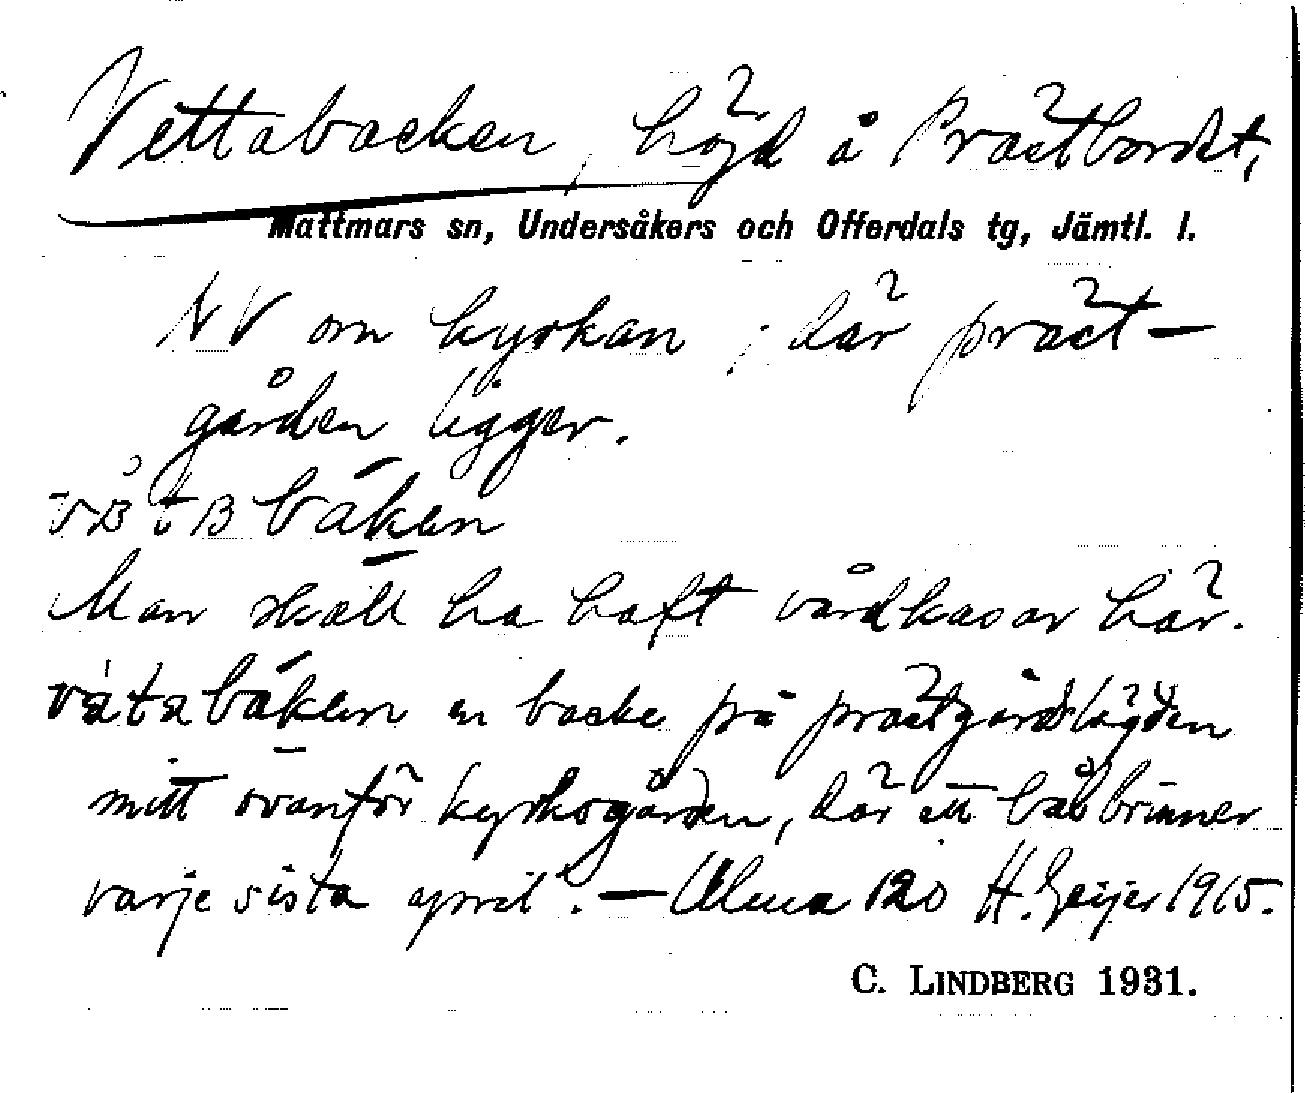 Vettabacken, höjd å Prästbordet,
Mattmars sn, Undersåkers och Offerdals tg, Jämtl. l.
NV om kyrkan, där präst-
gården ligger.
båken
Man skall ha haft vårdkasar här.
vàtabåken en backe på prästgårdslägden
mitt ovanför kyrkogården, där ett bål brinner
varje sista april. — Ulma 120 H. Geijer 1915.
C. LINDBERG 1931.